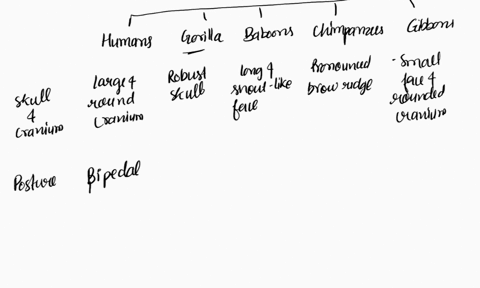 Humans Gorilla Baboons Chimpanzees Gibbons
Skull & Cranium
large & round Cranium
Robust skull
long & snout-like face
Pronounced brow ridge
- Small face & rounded cranium
Posture Bipedal